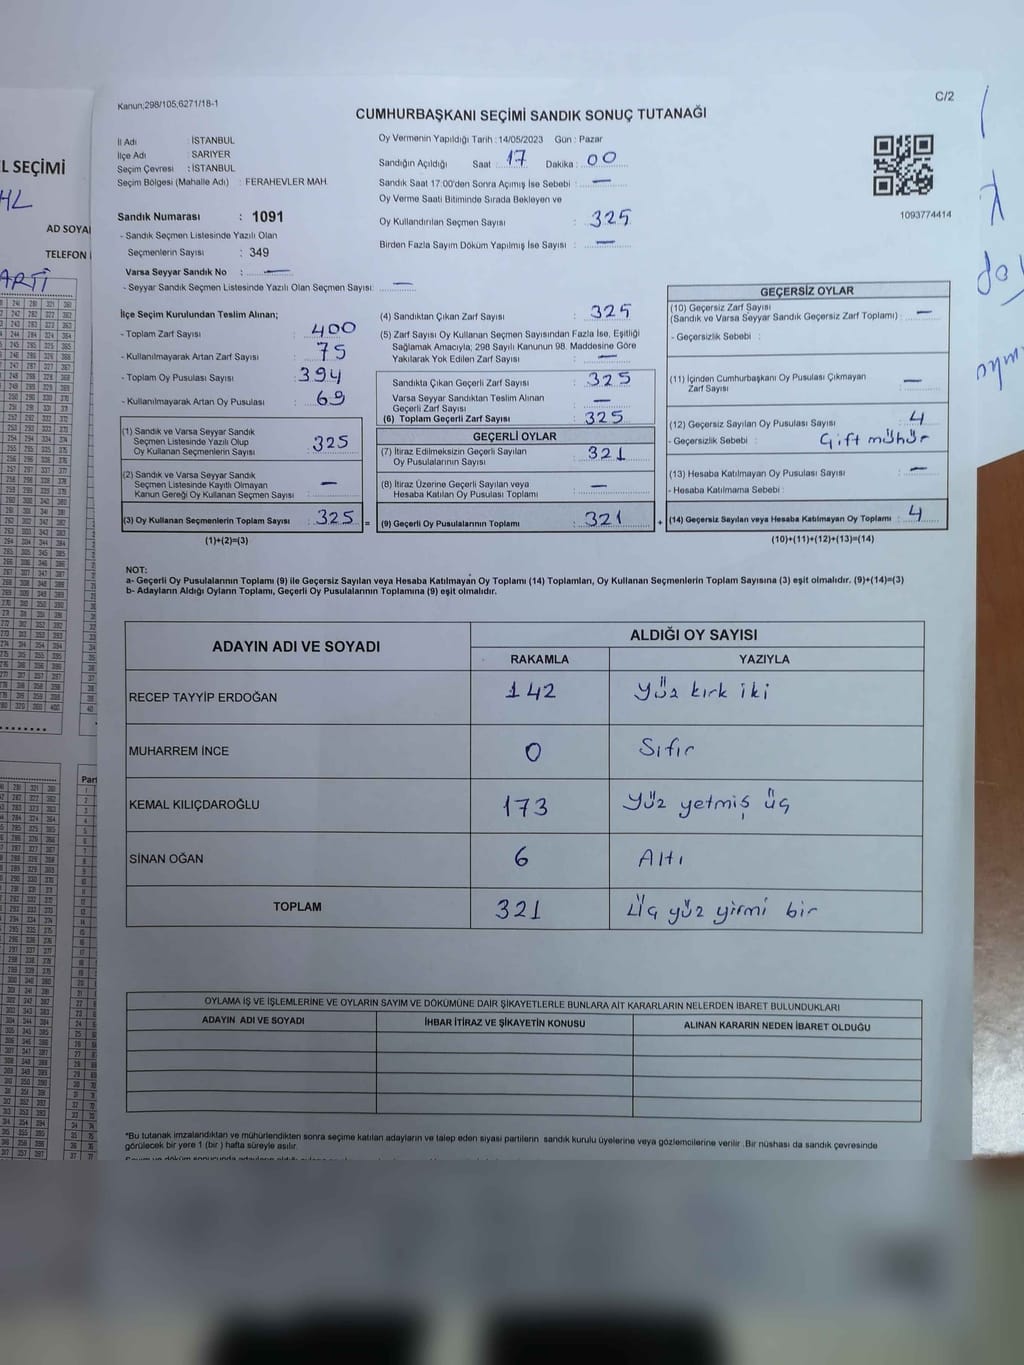 Kanun;298/105,6271/18-1
C/2
CUMHURBAŞKANI SEÇİMİ SANDIK SONUÇ TUTANAĞI
İl Adı : İSTANBUL
İlçe Adı : SARIYER
Seçim Çevresi : İSTANBUL
Seçim Bölgesi (Mahalle Adı) : FERAHEVLER MAH.
Sandık Numarası : 1091
- Sandık Seçmen Listesinde Yazılı Olan
Seçmenlerin Sayısı : 349
Varsa Seyyar Sandık No : —
- Seyyar Sandık Seçmen Listesinde Yazılı Olan Seçmen Sayısı: —
Oy Vermenin Yapıldığı Tarih : 14/05/2023 Gün : Pazar
Sandığın Açıldığı Saat : 17 Dakika : 00
Sandık Saat 17:00'den Sonra Açımış İse Sebebi : —
Oy Verme Saati Bitiminde Sırada Bekleyen ve
Oy Kullandırılan Seçmen Sayısı : 325
Birden Fazla Sayım Döküm Yapılmış İse Sayısı : —
1093774414
İlçe Seçim Kurulundan Teslim Alınan;
- Toplam Zarf Sayısı : 400
- Kullanılmayarak Artan Zarf Sayısı : 75
- Toplam Oy Pusulası Sayısı : 394
- Kullanılmayarak Artan Oy Pusulası : 69
(1) Sandık ve Varsa Seyyar Sandık
Seçmen Listesinde Yazılı Olup
Oy Kullanan Seçmenlerin Sayısı : 325
(2) Sandık ve Varsa Seyyar Sandık
Seçmen Listesinde Kayıtlı Olmayan
Kanun Gereği Oy Kullanan Seçmen Sayısı : —
(3) Oy Kullanan Seçmenlerin Toplam Sayısı : 325 =
(1)+(2)=(3)
(4) Sandıktan Çıkan Zarf Sayısı : 325
(5) Zarf Sayısı Oy Kullanan Seçmen Sayısından Fazla İse, Eşitliği
Sağlamak Amacıyla; 298 Sayılı Kanunun 98. Maddesine Göre
Yakılarak Yok Edilen Zarf Sayısı : —
Sandıkta Çıkan Geçerli Zarf Sayısı : 325
Varsa Seyyar Sandıktan Teslim Alınan
Geçerli Zarf Sayısı : —
(6) Toplam Geçerli Zarf Sayısı : 325
GEÇERLİ OYLAR
(7) İtiraz Edilmeksizin Geçerli Sayılan
Oy Pusulalarının Sayısı : 321
(8) İtiraz Üzerine Geçerli Sayılan veya
Hesaba Katılan Oy Pusulası Toplamı : —
(9) Geçerli Oy Pusulalarının Toplamı : 321 +
GEÇERSİZ OYLAR
(10) Geçersiz Zarf Sayısı
(Sandık ve Varsa Seyyar Sandık Geçersiz Zarf Toplamı) : —
- Geçersizlik Sebebi :
(11) İçinden Cumhurbaşkanı Oy Pusulası Çıkmayan
Zarf Sayısı : —
(12) Geçersiz Sayılan Oy Pusulası Sayısı : 4
- Geçersizlik Sebebi : Çift mühür
(13) Hesaba Katılmayan Oy Pusulası Sayısı : —
- Hesaba Katılmama Sebebi :
(14) Geçersiz Sayılan veya Hesaba Katılmayan Oy Toplamı : 4
(10)+(11)+(12)+(13)=(14)
NOT:
a- Geçerli Oy Pusulalarının Toplamı (9) ile Geçersiz Sayılan veya Hesaba Katılmayan Oy Toplamı (14) Toplamları, Oy Kullanan Seçmenlerin Toplam Sayısına (3) eşit olmalıdır. (9)+(14)=(3)
b- Adayların Aldığı Oyların Toplamı, Geçerli Oy Pusulalarının Toplamına (9) eşit olmalıdır.
ADAYIN ADI VE SOYADI
ALDIĞI OY SAYISI
RAKAMLA YAZIYLA
RECEP TAYYİP ERDOĞAN 142 Yüz kırk iki
MUHARREM İNCE 0 Sıfır
KEMAL KILIÇDAROĞLU 173 Yüz yetmiş üç
SİNAN OĞAN 6 Altı
TOPLAM 321 Üç yüz yirmi bir
OYLAMA İŞ VE İŞLEMLERİNE VE OYLARIN SAYIM VE DÖKÜMÜNE DAİR ŞİKAYETLERLE BUNLARA AİT KARARLARIN NELERDEN İBARET BULUNDUKLARI
ADAYIN ADI VE SOYADI İHBAR İTİRAZ VE ŞİKAYETİN KONUSU ALINAN KARARIN NEDEN İBARET OLDUĞU
*Bu tutanak imzalandıktan ve mühürlendikten sonra seçime katılan adayların ve talep eden siyasi partilerin sandık kurulu üyelerine veya gözlemcilerine verilir .Bir nüshası da sandık çevresinde
görülecek bir yere 1 (bir ) hafta süreyle asılır.
L SEÇİMİ
AD SOYA
TELEFON
ARTİ
Part